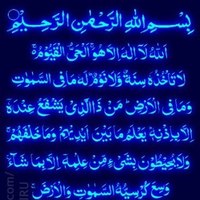 بِسْمِ اللهِ الرَّحْمٰنِ الرَّحِيْمِ
اَللهُ لَآ اِلٰهَ اِلَّا هُوَ اَلْحَيُّ الْقَيُّوْمُ
لَا تَأْخُذُهٗ سِنَةٌ وَّلَا نَوْمٌ لَهٗ مَا فِي السَّمٰوٰتِ
وَمَا فِي الْاَرْضِ مَنْ ذَا الَّذِيْ يَشْفَعُ عِنْدَهٗ
اِلَّا بِاِذْنِهٖ يَعْلَمُ مَا بَيْنَ اَيْدِيْهِمْ وَمَا خَلْفَهُمْ
وَلَا يُحِيْطُوْنَ بِشَيْءٍ مِّنْ عِلْمِهٖ اِلَّا بِمَا شَآءَ
وَسِعَ كُرْسِيُّهُ السَّمٰوٰتِ وَالْاَرْضَ